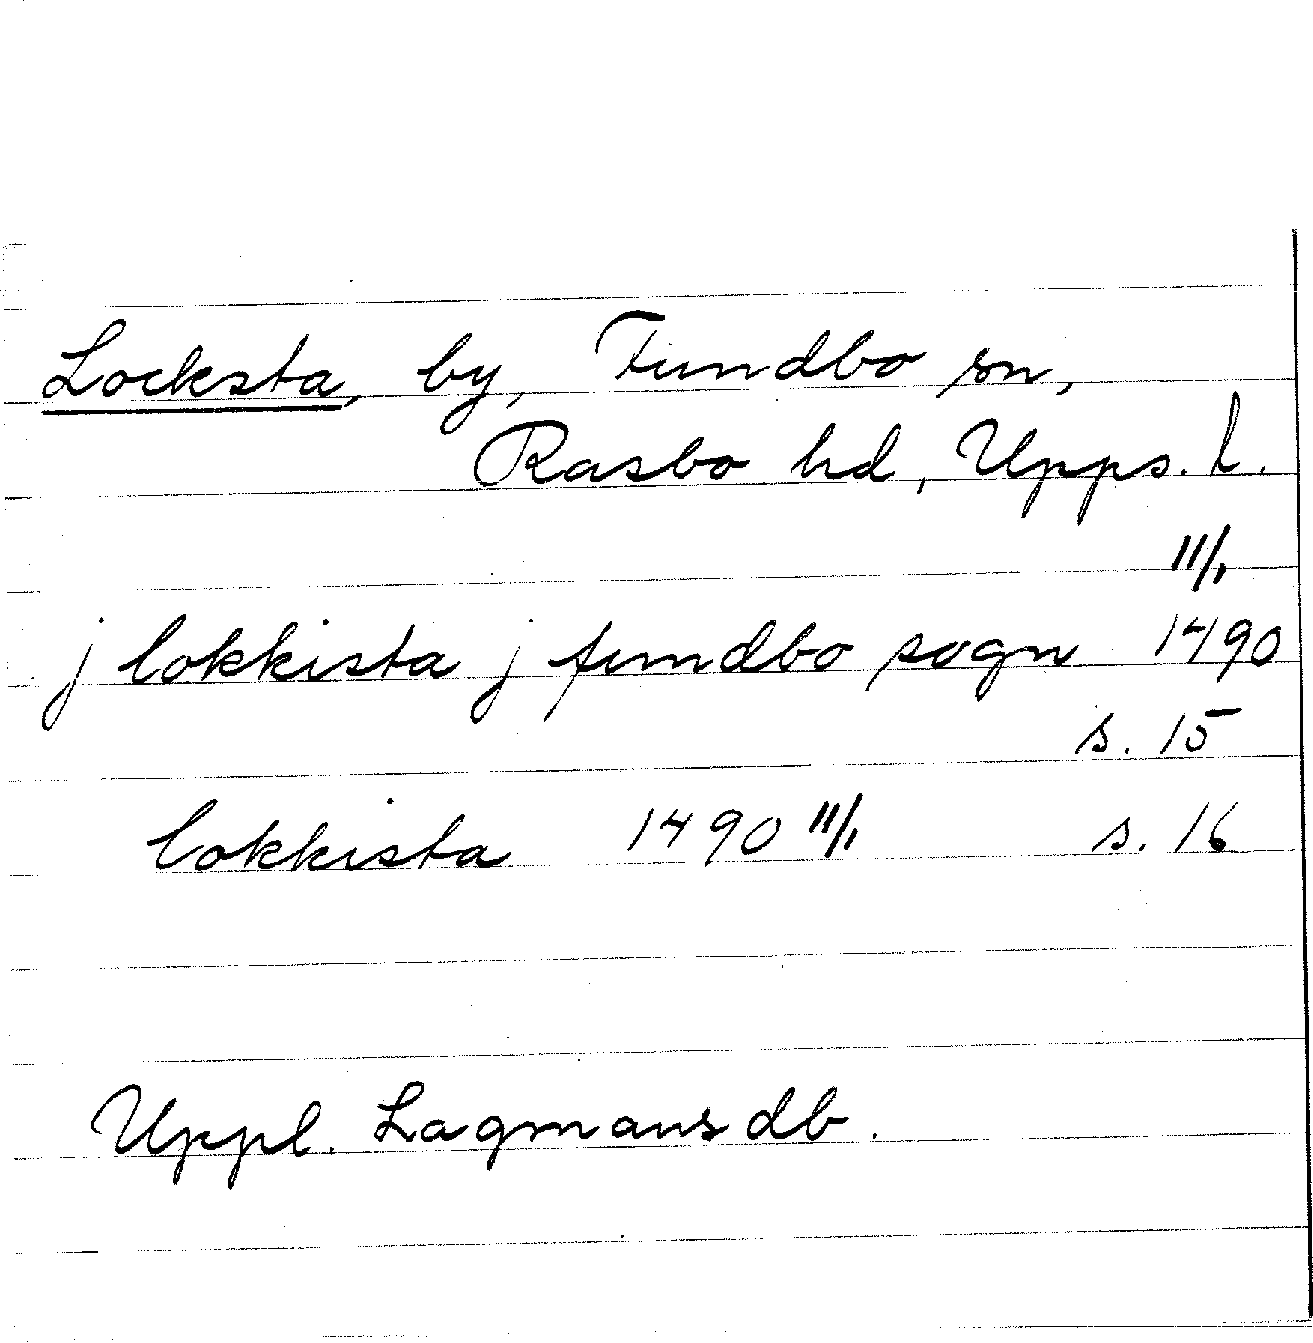 Locksta, by, Fundbo sn,
Rasbo hd, Upps. l.
11/1
j lokkista j fundbo sogn 1490
s. 15
lokkista 1490 11/1 s. 16
Uppl. Lagmansdb.